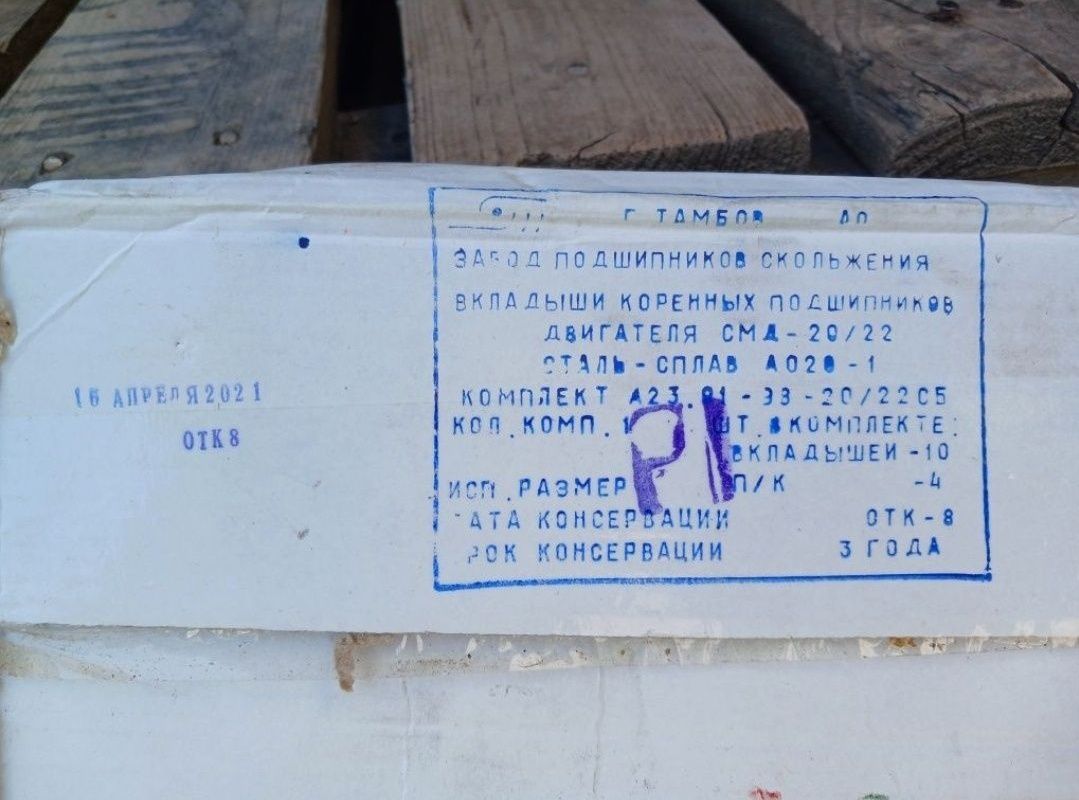 Г ТАМБОВ АО
ЗАВОД ПОДШИПНИКОВ СКОЛЬЖЕНИЯ
ВКЛАДЫШИ КОРЕННЫХ ПОДШИПНИКОВ
ДВИГАТЕЛЯ СМД-20/22
СТАЛЬ-СПЛАВ АО20-1
КОМПЛЕКТ А23.01-98-20/22СБ
КОЛ.КОМП. 1 ШТ.В КОМПЛЕКТЕ:
ВКЛАДЫШЕЙ -10
ИСП.РАЗМЕР Р1 П/К -4
ДАТА КОНСЕРВАЦИИ ОТК-8
СРОК КОНСЕРВАЦИИ 3 ГОДА
16 АПРЕЛЯ 2021
ОТК8